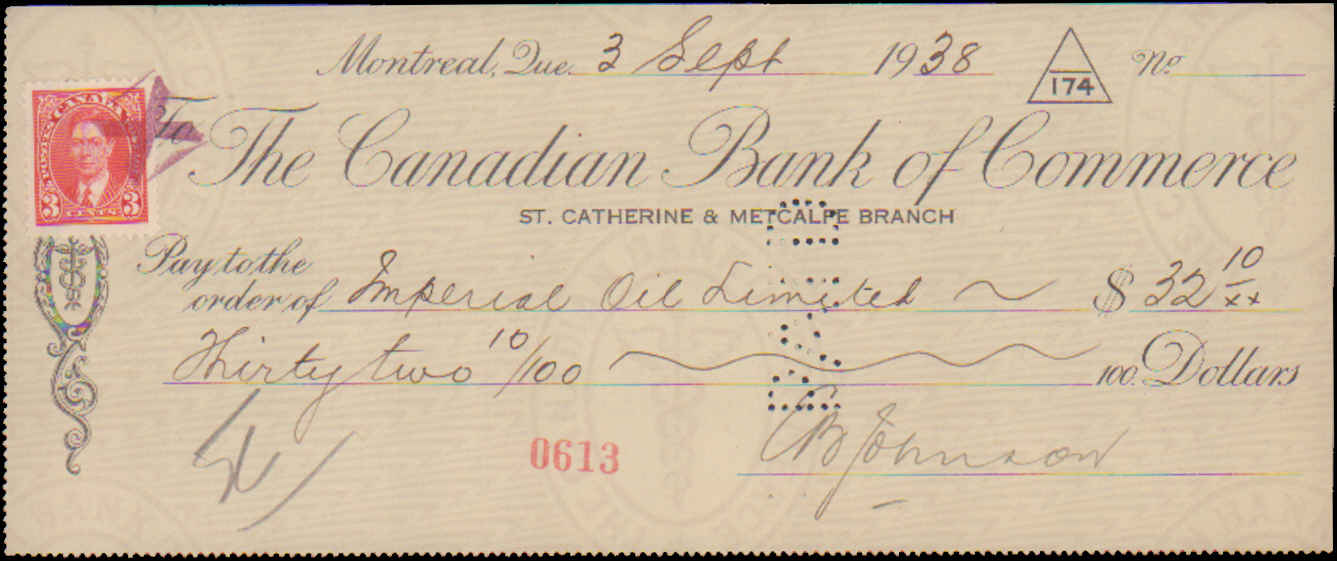 Montreal, Que. 3 Sept 1938 174 No.
POSTES CANADA POSTAGE
3 CENTS 3
To The Canadian Bank of Commerce
ST. CATHERINE & METCALFE BRANCH
Pay to the
order of Imperial Oil Limited ~ $ 32 10/xx
Thirty two 10/100 ~ 100 Dollars
0613
CB Johnson